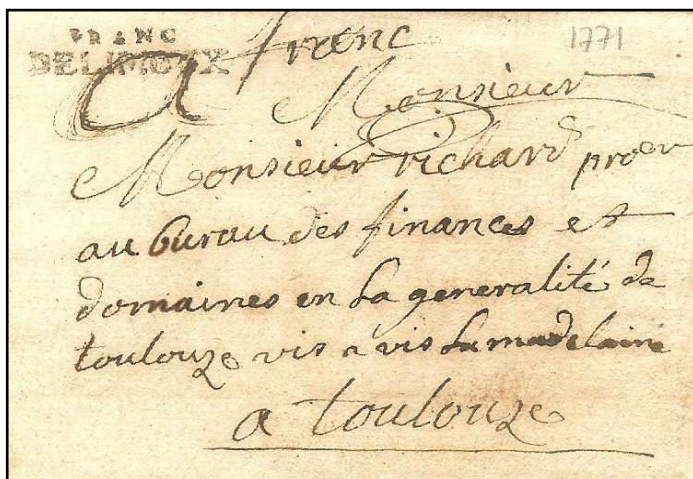 FRANC
DELIMOUX
franc
1771
A Monsieur
Monsieur richard procr
au burau des finances et
domaines en La generalité de
toulouze vis a vis La madelaine
a toulouze